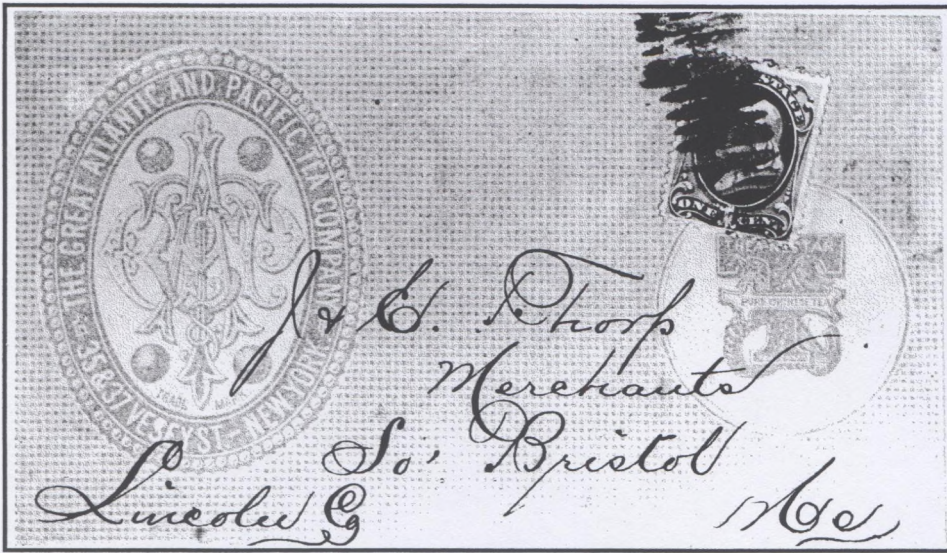 THE GREAT ATLANTIC AND PACIFIC TEA COMPANY
35 & 37 VESEY ST. NEW YORK
TRADE MARK
POSTAGE
ONE CENT
PURE CHINESE TEA
J & E. Thorp
Merchants
So. Bristol
Lincoln Co
Me